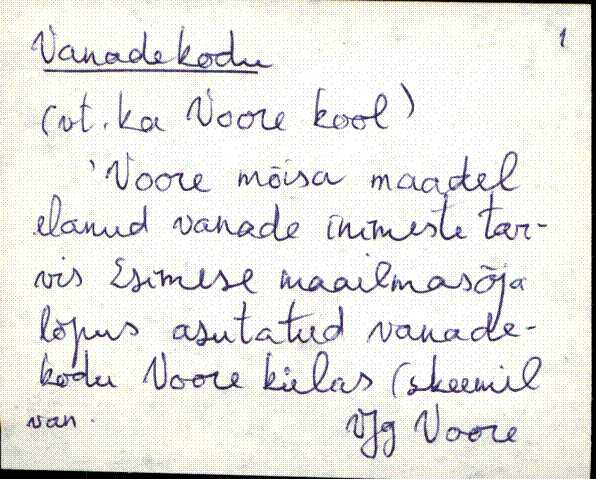 Vanadekodu 1
(vt. ka Voore kool)
'Voore mõisa maadel
elanud vanade inimeste tar-
vis Esimese maailmasõja
lõpus asutatud vanade-
kodu Voore külas (skeemil
van. VJg Voore